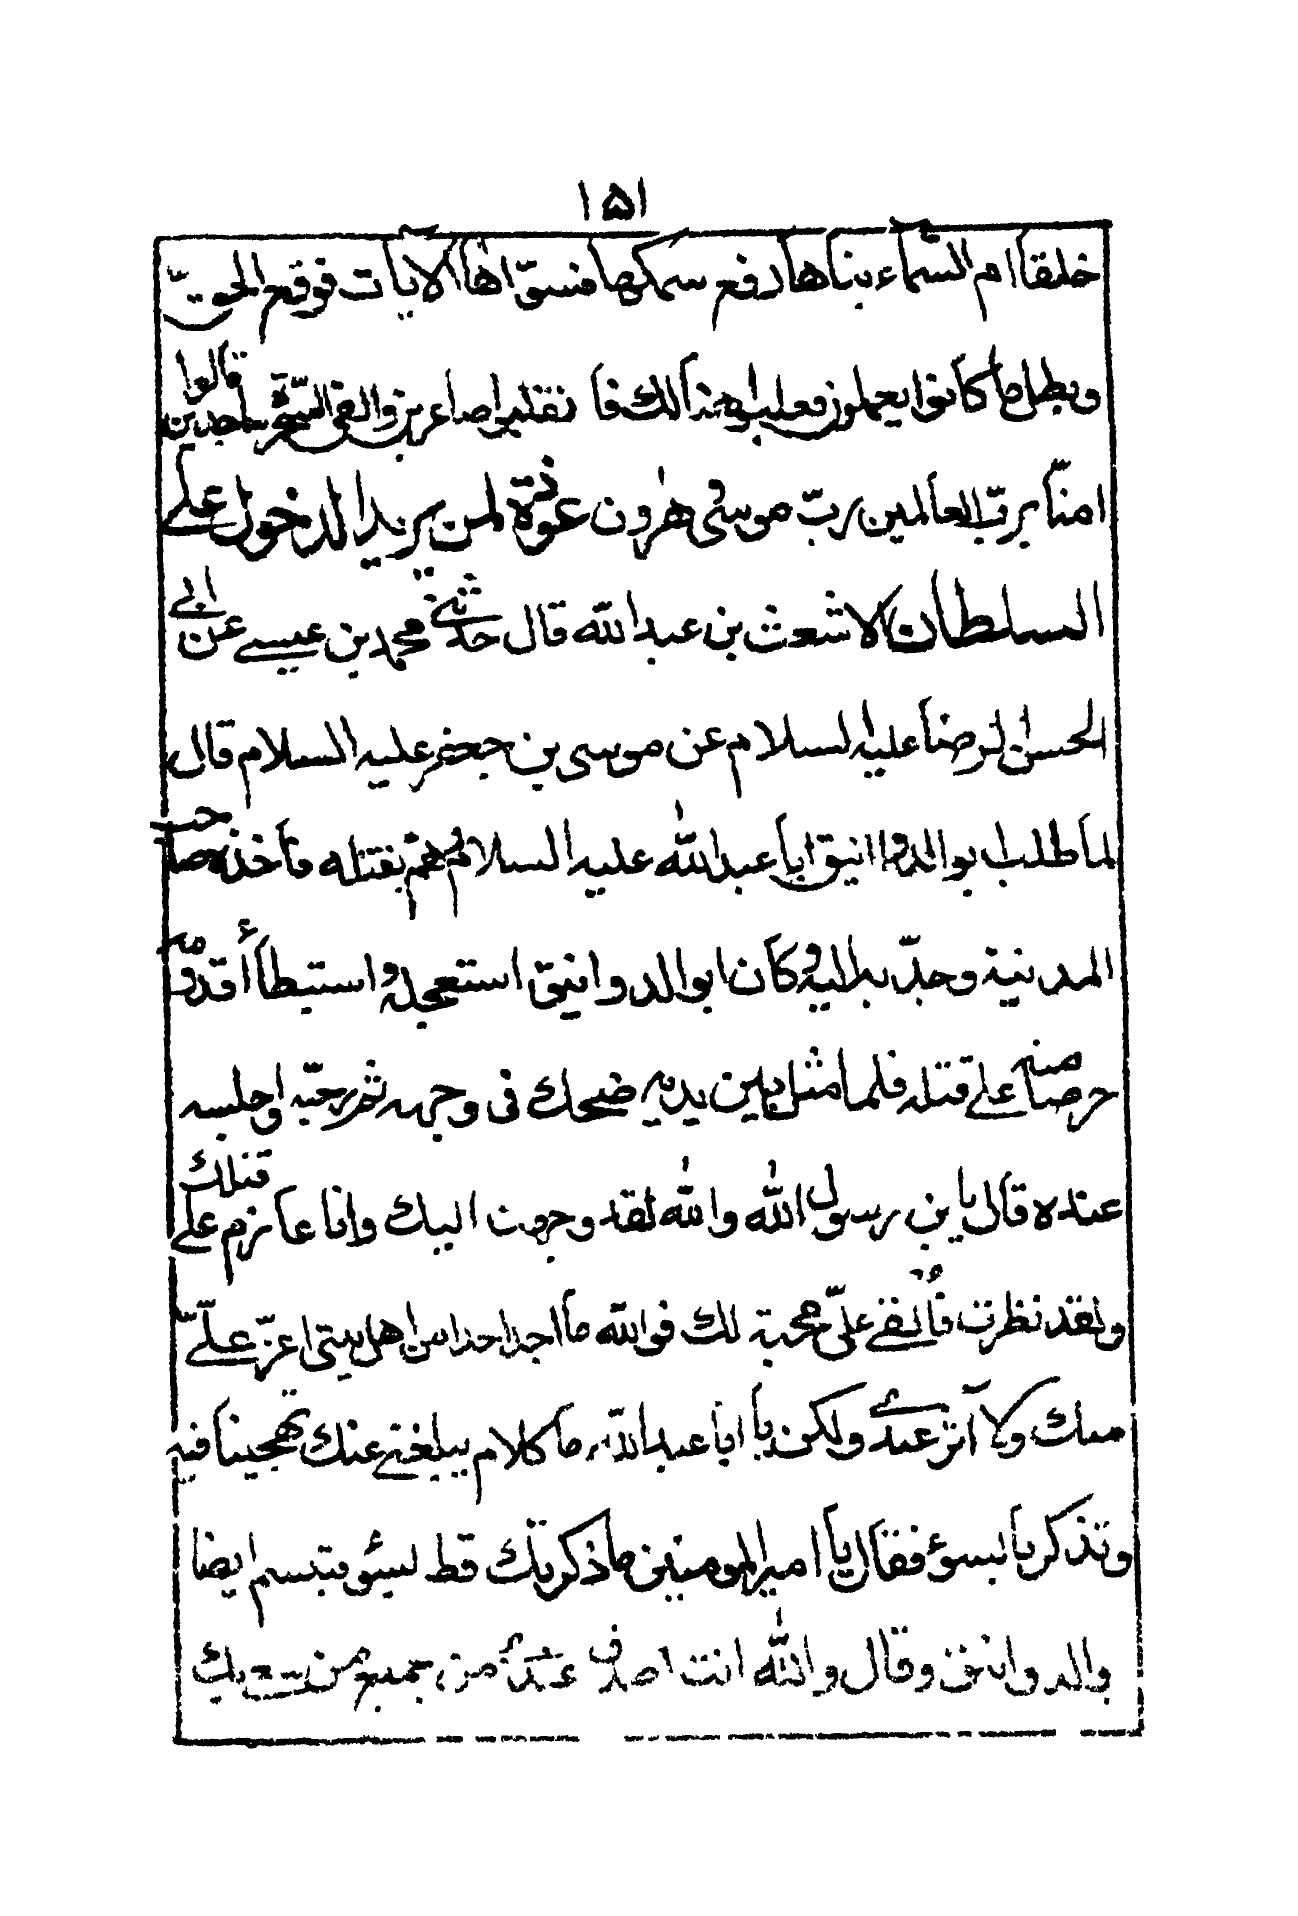 ١٥١
خلقا ام السماء بناها رفع سمكها فسوّاها الايات فوقع الحق
وبطل ما كانوا يعملون فغلبوا هنالك فا نقلبوا صاغرين والقى السحرة ساجدين قالوا
امنا برب العالمين رب موسى وهرون عوذة لمن يريد الدخول على
السلطان الاشعث بن عبد الله قال حدثني محمد بن عيسى عن ابى
الحسن الرضا عليه السلام عن موسى بن جعفر عليه السلام قال
لما طلب ابو الدوانيق ابا عبد الله عليه السلام وهمّ بقتله فأخذه صاحب
المدينة وجدّ به اليه وكان ابو الدوانيق استعجله واستبطأ قدومه
حرصا منه على قتله فلما مثل بين يديه ضحك فى وجهه ثم رحبّ به واجلسه
عنده قال يا بن رسول الله والله لقد وجهت اليك وانا عازم على قتلك
ولقد نظرت فألقى علىّ محبة لك فوالله ما اجد احدا من اهل بيتى اعزّ علىّ
منك ولا آثر عندى ولكن يا ابا عبد الله ما كلام يبلغنى عنك تهجينا فيه
وتذكرنا بسوء فقال يا امير المومنين ما ذكرتك قط بسوء فتبسم ايضا
والدوانيق وقال والله انت اصدق عندى من جميع من سعى بك